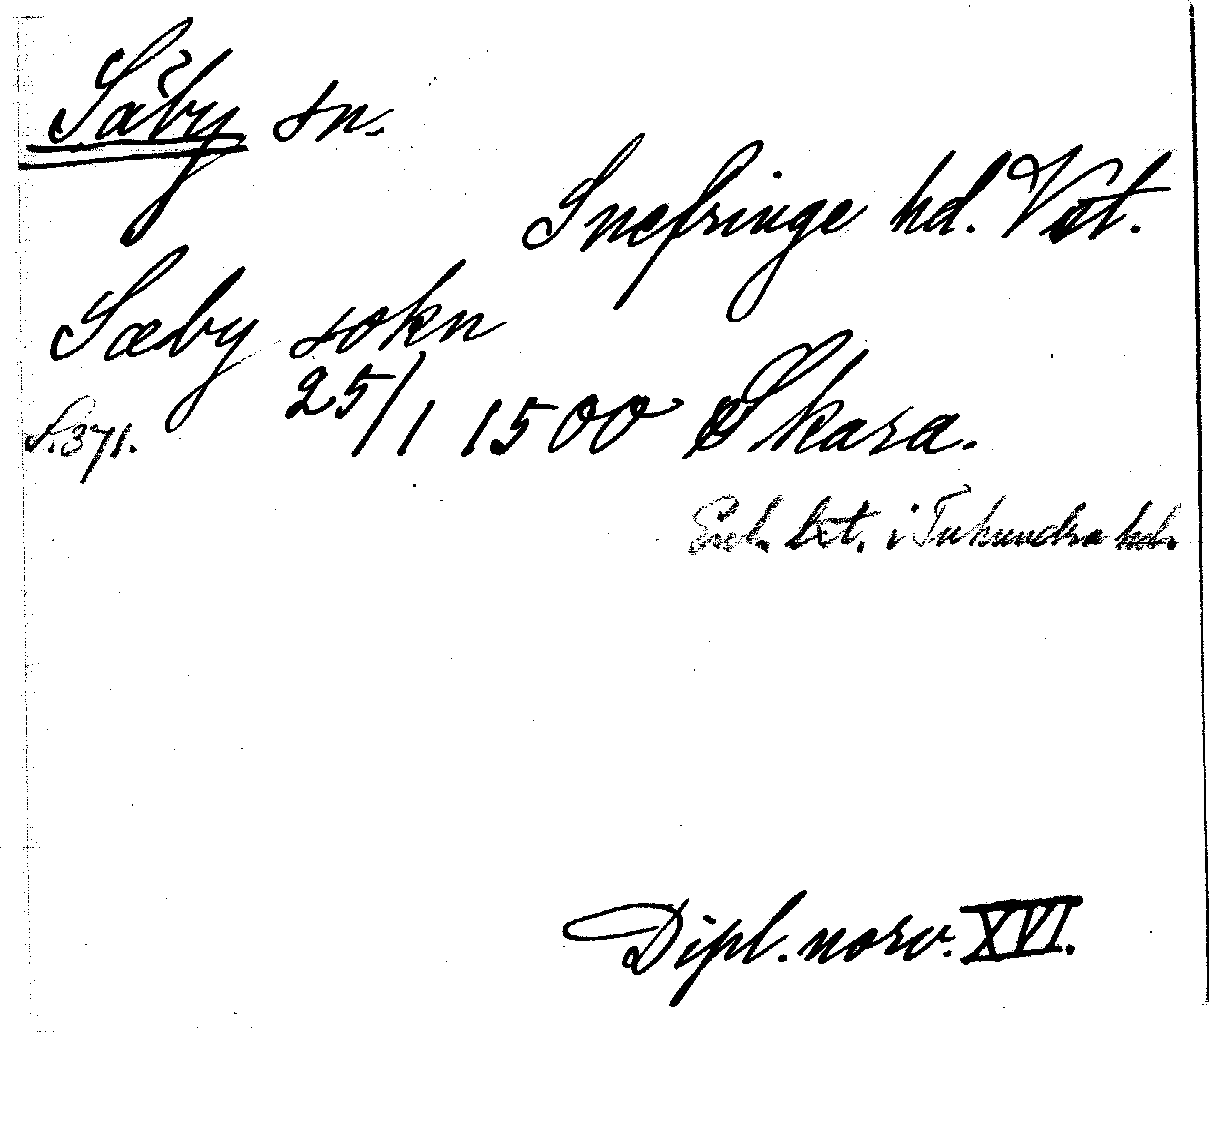 Såby sn.
Snefringe hd. Vstm.
Sæby sokn
S. 371. 25/1 1500 Skara.
Enl. txt. i Tuhundra hd.
Dipl. norv. XVI.